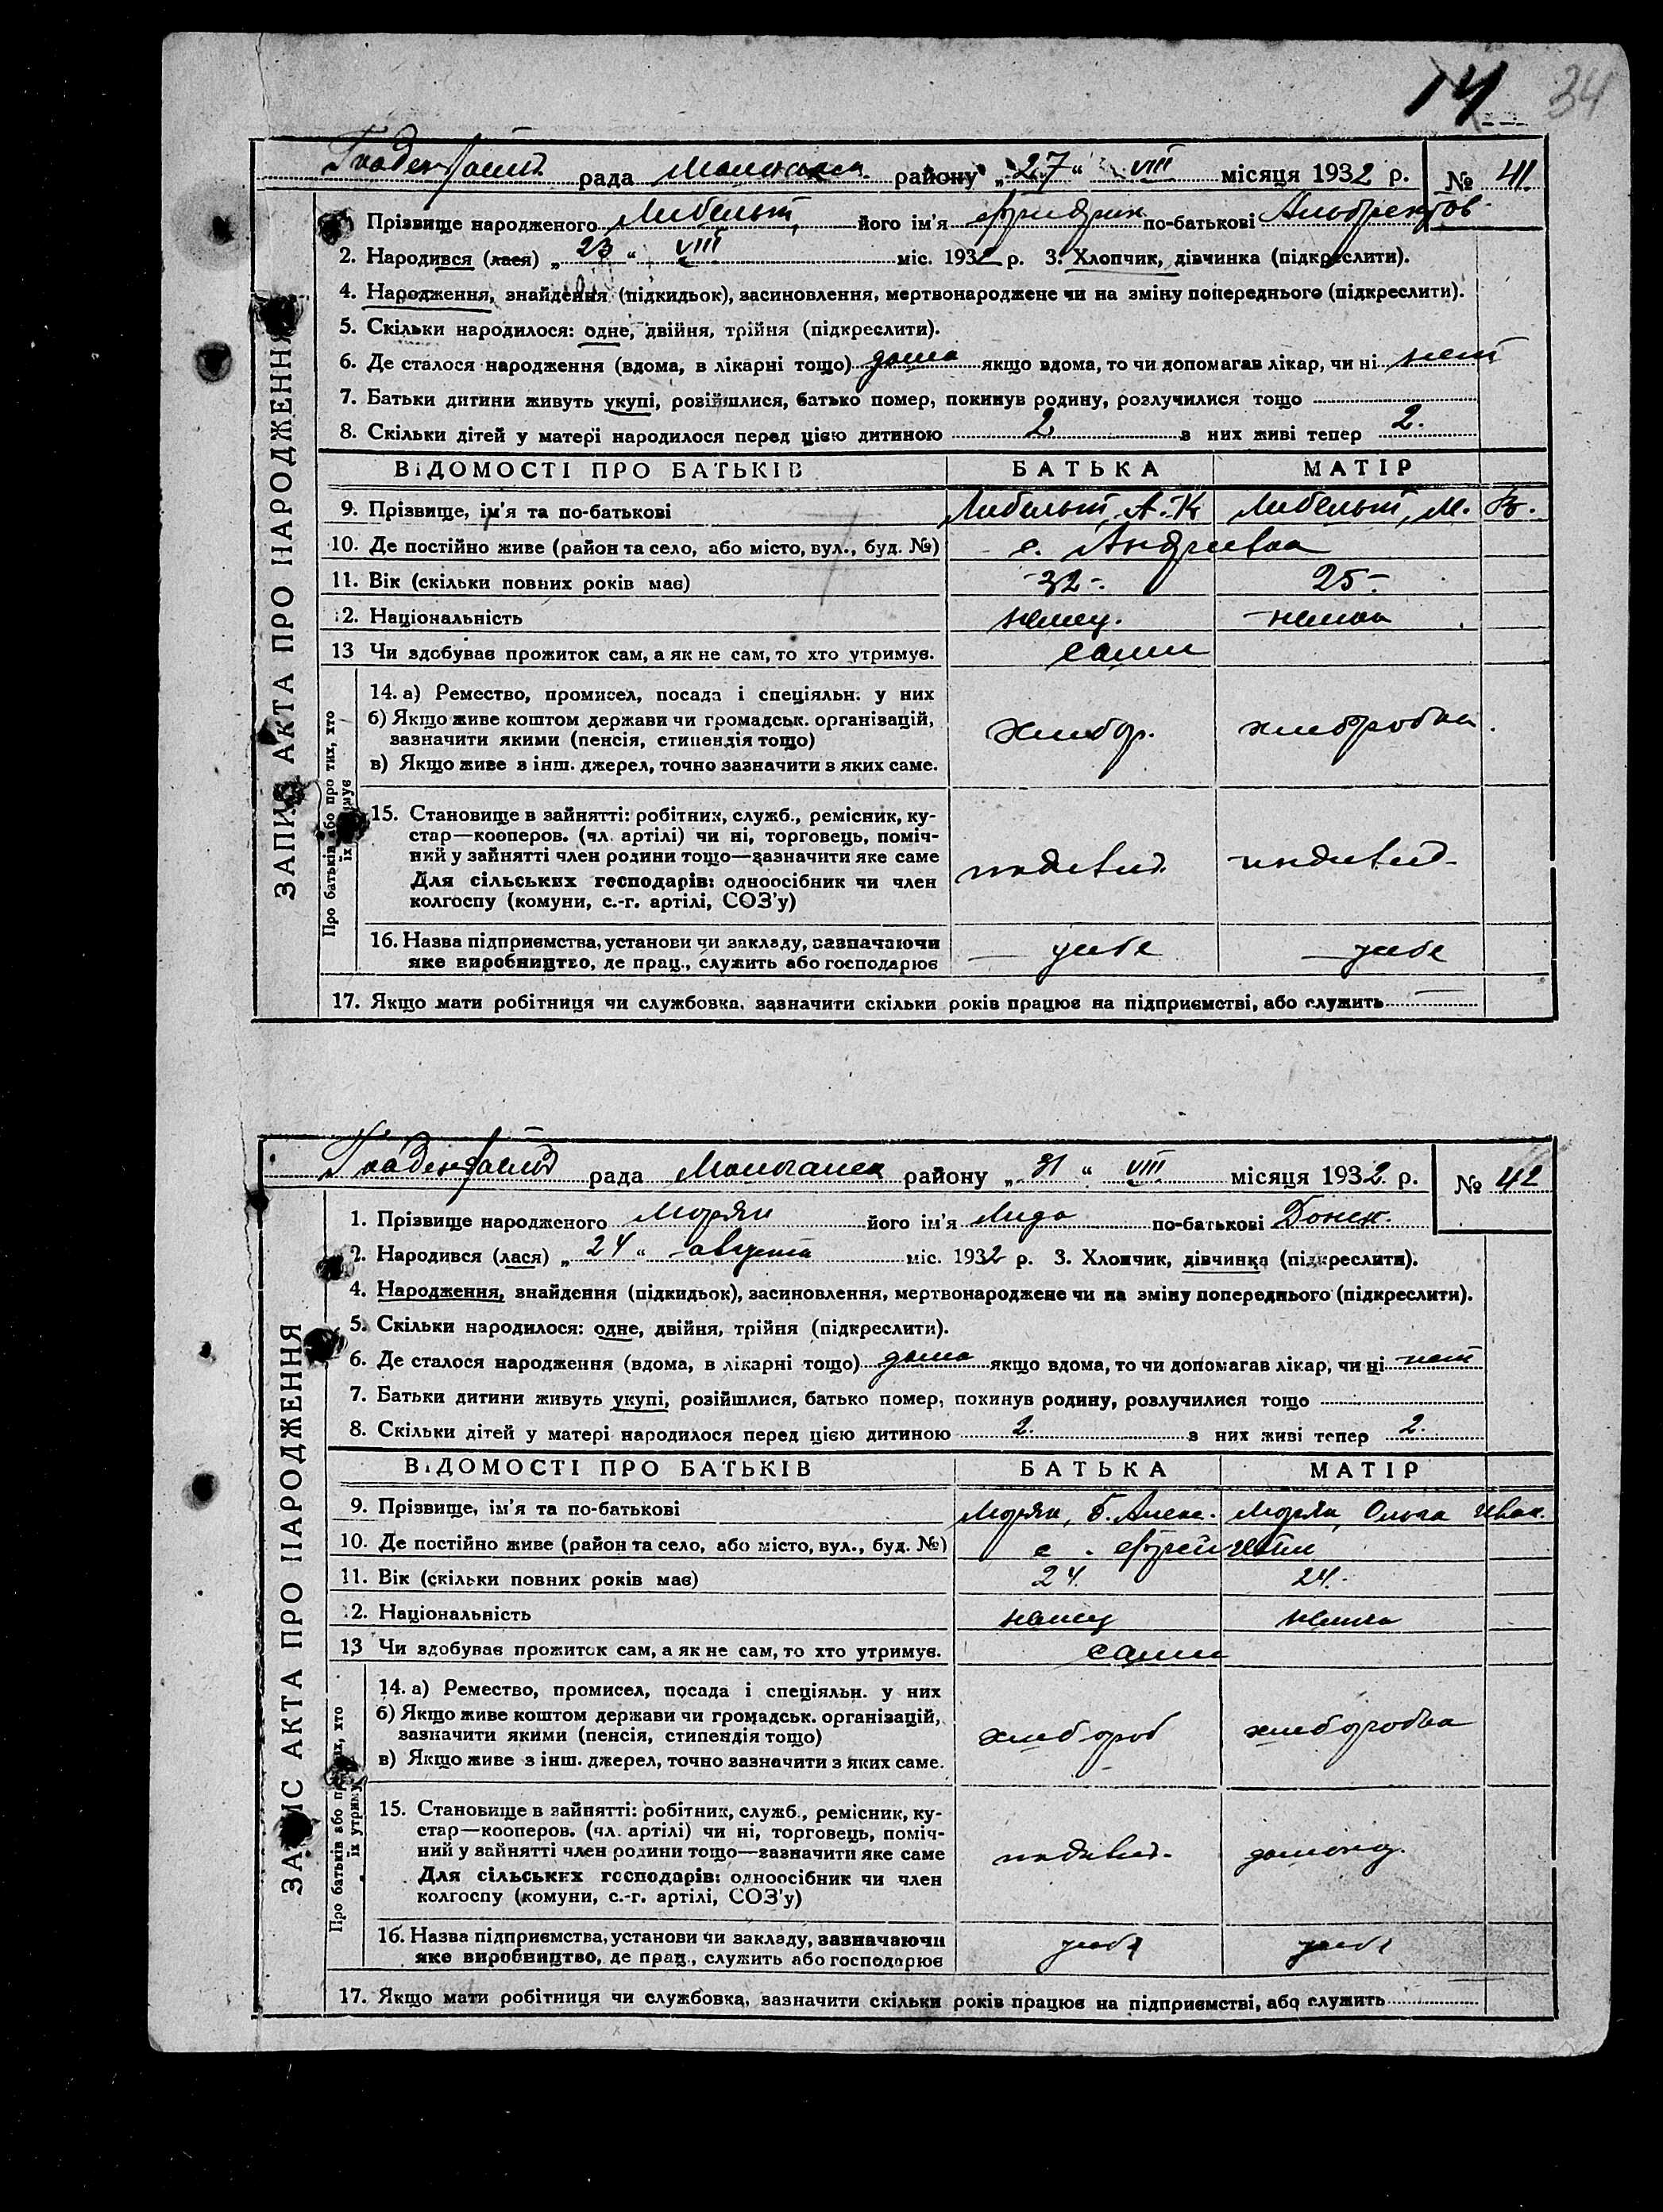 14 34
Гнаденфельд рада Молочанск району „27“ VIII місяця 1932 р. № 41
Прізвище народженого Либельт, його ім'я Фридрих по-батькові Альбрехтов
2. Народився (лася) „23“ VIII міс. 1932 р. 3. Хлопчик, дівчинка (підкреслити).
4. Народження, знайдення (підкидьок), засиновлення, мертвонароджене чи на зміну попереднього (підкреслити).
5. Скільки народилося: одне, двійня, трійня (підкреслити).
6. Де сталося народження (вдома, в лікарні тощо) дома якщо вдома, то чи допомагав лікар, чи ні нет
7. Батьки дитини живуть укупі, розійшлися, батько помер, покинув родину, розлучилися тощо
8. Скільки дітей у матері народилося перед цією дитиною 2 з них живі тепер 2.
ВІДОМОСТІ ПРО БАТЬКІВ БАТЬКА МАТІР
9. Прізвище, ім'я та по-батькові Либельт, А. К Либельт, М.
10. Де постійно живе (район та село, або місто, вул., буд. №) с. Андреевка
11. Вік (скільки повних років має) 32 25
12. Національність немец. немка
13 Чи здобуває прожиток сам, а як не сам, то хто утримує. сами
14. а) Ремество, промисел, посада і спеціяльн. у них
б) Якщо живе коштом держави чи громадськ. організацій,
зазначити якими (пенсія, стипендія тощо)
хлебор. хлеборобка
в) Якщо живе з інш. джерел, точно зазначити з яких саме.
15. Становище в зайнятті: робітник, служб., ремісник, ку-
стар—кооперов. (чл. артілі) чи ні, торговець, поміч-
ний у зайнятті член родини тощо—зазначити яке саме
индивид. индивид.
Для сільських господарів: одноосібник чи член
колгоспу (комуни, с.-г. артілі, СОЗ'у)
16. Назва підприємства, установи чи закладу, зазначаючи
яке виробництво, де прац., служить або господарює
17. Якщо мати робітниця чи службовка, зазначити скільки років працює на підприємстві, або служить
ЗАПИС АКТА ПРО НАРОДЖЕННЯ
Про батьків або про тих, хто
їх утримує
Гнаденфельд рада Молочанск району „31“ VIII місяця 1932 р. № 42
1. Прізвище народженого Морян його ім'я Лида по-батькові
2. Народився (лася) „24“ августа міс. 1932 р. 3. Хлопчик, дівчинка (підкреслити).
4. Народження, знайдення (підкидьок), засиновлення, мертвонароджене чи на зміну попереднього (підкреслити).
5. Скільки народилося: одне, двійня, трійня (підкреслити).
6. Де сталося народження (вдома, в лікарні тощо) дома якщо вдома, то чи допомагав лікар, чи ні нет
7. Батьки дитини живуть укупі, розійшлися, батько помер, покинув родину, розлучилися тощо
8. Скільки дітей у матері народилося перед цією дитиною 2. з них живі тепер 2.
ВІДОМОСТІ ПРО БАТЬКІВ БАТЬКА МАТІР
9. Прізвище, ім'я та по-батькові Морян, Морян, Ольга Иван.
10. Де постійно живе (район та село, або місто, вул., буд. №) с.
11. Вік (скільки повних років має) 24. 24.
12. Національність немец немка
13 Чи здобуває прожиток сам, а як не сам, то хто утримує. сами
14. а) Ремество, промисел, посада і спеціяльн. у них
б) Якщо живе коштом держави чи громадськ. організацій,
зазначити якими (пенсія, стипендія тощо)
хлебороб хлеборобка
в) Якщо живе з інш. джерел, точно зазначити з яких саме.
15. Становище в зайнятті: робітник, служб., ремісник, ку-
стар—кооперов. (чл. артілі) чи ні, торговець, поміч-
ний у зайнятті член родини тощо—зазначити яке саме
индивид. домохоз.
Для сільських господарів: одноосібник чи член
колгоспу (комуни, с.-г. артілі, СОЗ'у)
16. Назва підприємства, установи чи закладу, зазначаючи
яке виробництво, де прац., служить або господарює
17. Якщо мати робітниця чи службовка, зазначити скільки років працює на підприємстві, або служить
ЗАПИС АКТА ПРО НАРОДЖЕННЯ
Про батьків або про тих, хто
їх утримує